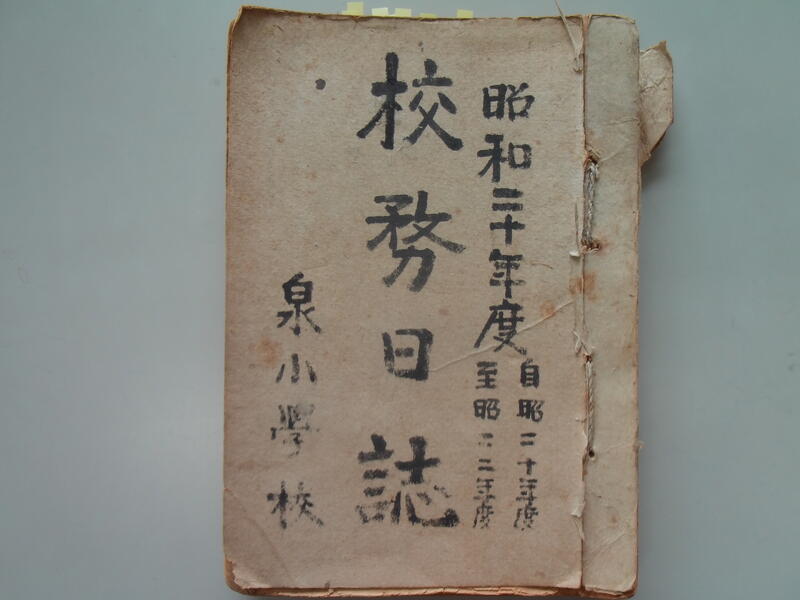 昭和二十年度
自昭二十年度
至昭二二年度
校務日誌
泉小學校